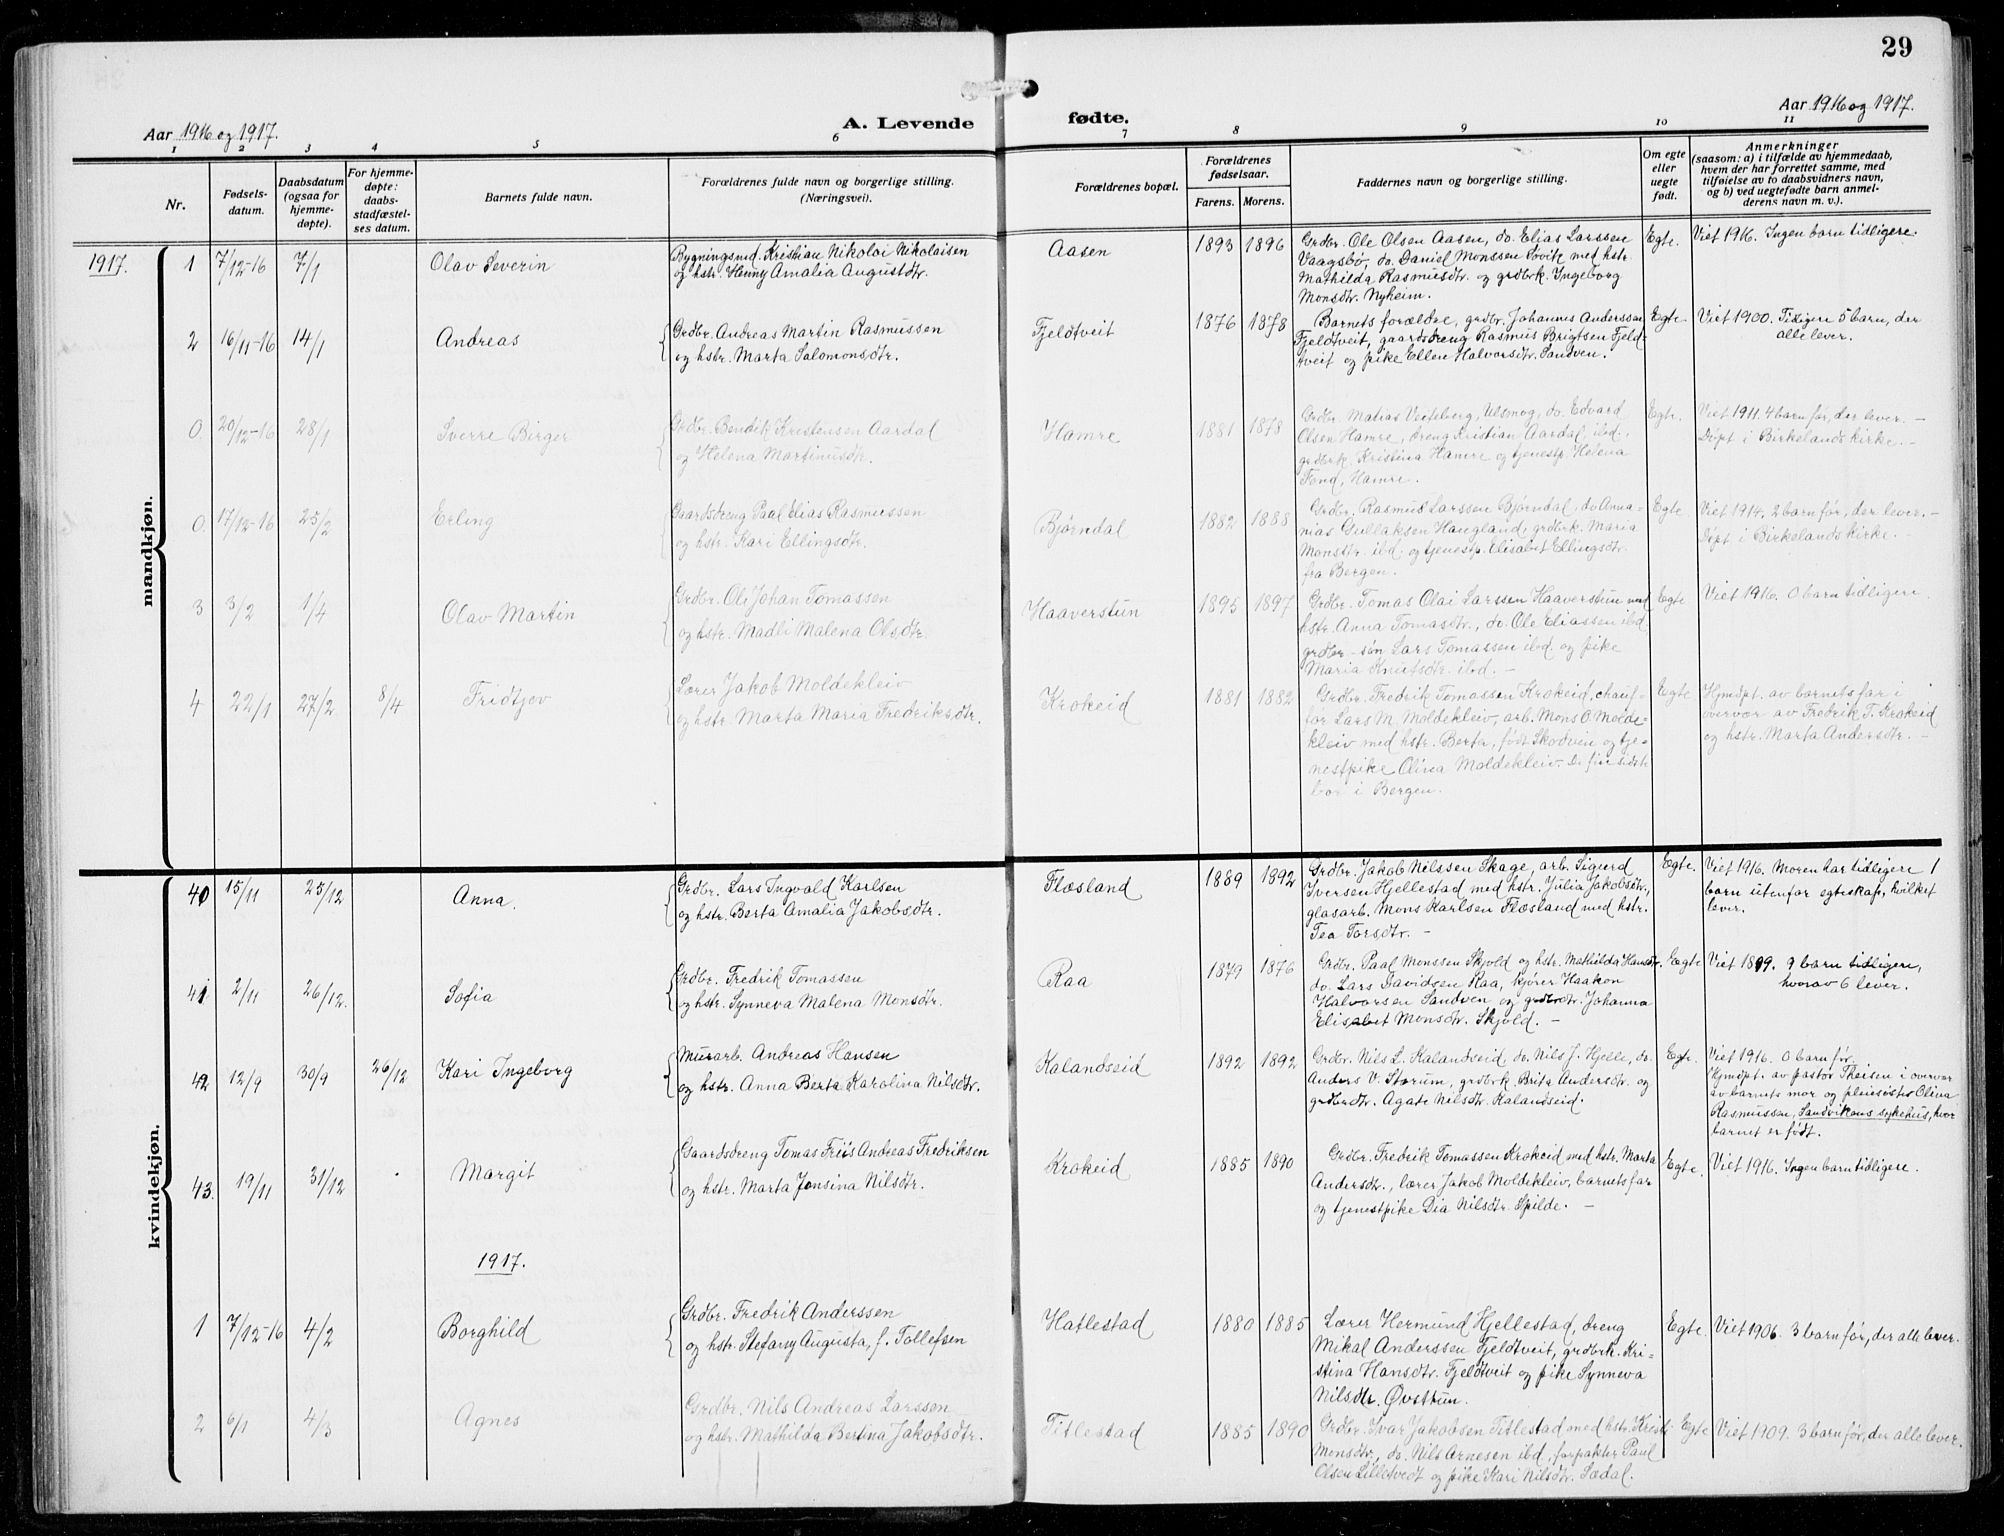 29
Aar 1916 og 1917.
A. Levende fødte.
Aar 1916 og 1917.
1 2 3 4 5 6 7 8 9 10 11
Nr.
Fødsels-
datum.
Daabsdatum
(ogsaa for
hjemme-
døpte).
For hjemme-
døpte:
daabs-
stadfæstel-
ses datum.
Barnets fulde navn.
Forældrenes fulde navn og borgerlige stilling.
(Næringsvei).
Forældrenes bopæl.
Forældrenes
fødselsaar.
Farens. Morens.
Faddernes navn og borgerlige stilling.
Om egte
eller
uegte
født.
Anmerkninger
(saasom: a) i tilfælde av hjemmedaab,
hvem der har forrettet samme, med
tilføielse av to daabsvidners navn,
og b) ved uegtefødte barn anmel-
derens navn m. v.).
mandkjøn.
1917. 1 7/12-16 7/1 Olav Severin
Bygningsmd. Kristian Nikoloi Nikolaisen
og hstr. Henny Amalia Augustdtr.
Aasen 1893 1896
Grdbr. Ole Olsen Aasen, do. Elias Larssen
Vaagsbø, do. Daniel Monssen Søvik med hstr.
Mathilda Rasmusdtr. og grdbrk. Ingeborg
Monsdtr. Nyheim.
Egte. Viet 1916. Ingen barn tidligere.
2 16/11-16 14/1 Andreas
Grdbr. Andreas Martin Rasmussen
og hstr. Marta Salomonsdtr.
Fjeldtveit 1876 1878
Barnets forældre, grdbr. Johannes Anderssen
Fjeldtveit, gaardsdreng Rasmus Brigtsen Fjeld-
tveit og pike Ellen Halvorsdtr. Sandven.
Egte. Viet 1900. Tidligere 5 barn, der
alle lever.
0. 20/12-16 28/1 Sverre Birger
Grdbr. Bendik Kristensen Aardal
og Helena Martinusdtr.
Hamre 1881 1878
Grdbr. Matias Veiteberg, Ulsmog, do. Edvard
Olsen Hamre, dreng Kristian Aardal, ibd.,
grdbrk. Kristina Hamre og tjenestp. Helena
Tond, Hamre.
Egte. Viet 1911. 4 barn før, der lever. –
Døpt i Birkelands kirke. –
0. 17/12-16 25/2 Erling
Gaardsdreng Paal Elias Rasmussen
og hstr. Kari Ellingsdtr.
Bjørndal 1882 1888
Grdbr. Rasmus Larssen Bjørndal, do Anna-
nias Gullaksen Haugland, grdbrk. Maria
Monsdtr. ibd. og tjenestp. Elisabet Ellingsdtr.
fra Bergen.
Egte Viet 1914. 2 barn før, der lever. –
Døpt i Birkelands kirke. –
3 3/2 1/4 Olav Martin
Grdbr. Ole Johan Tomassen
og hstr. Madli Malena Olsdtr.
Haaverstun 1895 1897
Grdbr. Tomas Olai Larssen Haaverstun med
hstr. Anna Tomasdtr., do. Ole Eliassen ibd
grdbr.-søn Lars Tomassen ibd. og pike
Maria Knutsdtr. ibd. –
Egte Viet 1916. 0 barn tidligere.
4 22/1 27/2 8/4 Fridtjov
Lærer Jakob Moldekleiv
og hstr. Marta Maria Fredriksdtr.
Krokeid 1881 1882
Grdbr. Fredrik Tomassen Krokeid, chauf-
før Lars M. Moldekleiv, arb. Mons O. Molde-
kleiv med hstr. Berta, født Skodven og tje-
nestpike Olina Moldekleiv. De fire sidste
bor i Bergen.
Egte Hjmdpt. av barnets far i
overvær av Fredrik T. Krokeid
og hstr. Marta Andersdtr. –
kvindekjøn.
40 15/11 25/12 Anna.
Grdbr. Lars Ingvald Karlsen
og hstr. Berta Amalia Jakobsdtr.
Flæsland 1889 1892
Grdbr. Jakob Nilssen Skage, arb. Sigurd
Iversen Hjellestad med hstr. Julia Jakobsdtr,
glasarb. Mons Karlsen Flæsland med hstr.
Tea Torsdtr. –
Egte. Viet 1916. Moren har tidligere 1
barn utenfor egteskap, hvilket
lever.
41 2/11 26/12. Sofia
Grdbr. Fredrik Tomassen
og hstr. Synneva Malena Monsdtr.
Raa 1879 1876
Grdbr. Paal Monssen Skjold og hstr. Mathilda Hansdtr.
do. Lars Davidsen Raa, kjører Haakon
Halvorsen Sandven og grdbrdtr. Johanna
Elisabet Monsdtr. Skjold. –
Egte Viet 1899. 9 barn tidligere,
hvorav 6 lever.
42 12/9 30/9 26/12 Kari Ingeborg
Murarb. Andreas Hansen
og hstr. Anna Berta Karolina Nilsdtr.
Kalandseid 1892 1892
Grdbr. Nils L. Kalandseid, do. Nils J. Hjelle, do.
Anders V. Storum, grdbrk. Brita Andersdtr. og
grdbrdtr. Agate Nilsdtr. Kalandseid.
Egte. Viet 1916. 0 barn før.
Hjmdpt. av pastor Theisen i overvær
av barnets mor og pleiesøster Olina
Rasmussen, Sandvikens sykehus, hvor
barnet er født.
43. 19/11 31/12 Margit
Gaardsdreng Tomas Friis Andreas Fredriksen
og hstr. Marta Jonsina Nilsdtr.
Krokeid 1885 1890
Grdbr. Fredrik Tomassen Krokeid med hstr. Marta
Andersdtr., lærer Jakob Moldekleiv, barnets far
og tjenestpike Dia Nilsdtr. Spilde. –
Egte. Viet 1916. Ingen barn tidligere.
1917.
1 7/12-16 4/2 Borghild
Grdbr. Fredrik Anderssen
og hstr. Stefansy Augusta, f. Tollefsen
Hatlestad 1880 1885
Lærer Hermund Hjellestad, dreng
Mikal Anderssen Fjeldtveit, grdbrk. Kri-
stina Hansdtr. Fjeldtveit og pike Synneva
Nilsdtr. Øvstun.
Egte. Viet 1906. 3 barn før, der alle lever.
2 6/1 4/3 Agnes
Grdbr. Nils Andreas Larssen
og hstr. Mathilda Bertina Jakobsdtr.
Titlestad 1885 1890
Grdbr. Ivar Jakobsen Titlestad med hstr. Kristi
Monsdtr., do. Nils Arnesen ibd., forpakter Paul
Olsen Lilletvedt og pike Kari Nilsdtr. Sædal.
Egte Viet 1909. 3 barn før, der alle lever.